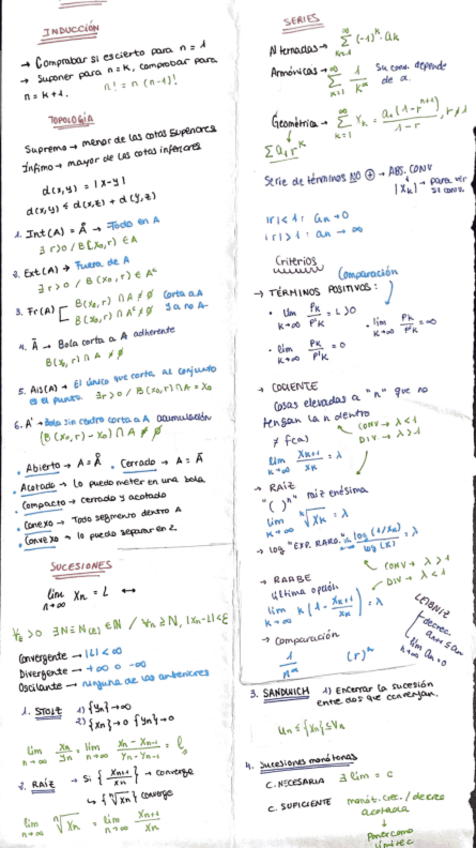 INDUCCIÓN
→ Comprobar si es cierto para n = 1
→ Suponer para n=k, comprobar para
n = k+1.
n! = n (n-1)!
TOPOLOGÍA
Supremo → menor de las cotas superiores
Ínfimo → mayor de las cotas inferiores
d(x,y) = |x-y|
d(x,y) ≤ d(x,z) + d(y,z)
1. Int(A) = Å → Todo en A
∃ r>0 / B(x₀,r) ∈ A
2. Ext(A) → Fuera de A
∃ r>0 / B(x₀,r) ∈ Aᶜ
3. Fr(A) [ B(x₀,r) ∩ A ≠ ∅ Corta a A
B(x₀,r) ∩ Aᶜ ≠ ∅ y a no A
4. Ā → Bola corta a A adherente
B(x₀,r) ∩ A ≠ ∅
5. Ais(A) → El único que corta al conjunto
es el punto. ∃r>0 / B(x₀,r) ∩ A = x₀
6. A' → Bola sin centro corta a A acumulación
(B(x₀,r) - x₀) ∩ A ≠ ∅
• Abierto → A = Å • Cerrado → A = Ā
• Acotado → Lo puedo meter en una bola
• Compacto → cerrado y acotado
• Conexo → Todo segmento dentro A
• Convexo → lo puedo separar en 2.
SUCESIONES
lim n→∞ xₙ = L ↔
∀ε>0 ∃N≡N(ε)∈ℕ / ∀n≥N, |xₙ-L|<ε
Convergente → |L| < ∞
Divergente → +∞ o -∞
Oscilante → ninguna de las anteriores
1. STOLZ 1) {yₙ}→∞
2) {xₙ}→0 {yₙ}→0
lim n→∞ xₙ/yₙ = lim n→∞ (xₙ - xₙ₋₁)/(yₙ - yₙ₋₁) = l
2. RAÍZ → Si {xₙ₊₁/xₙ} → converge
↳ {ⁿ√xₙ} converge
lim n→∞ ⁿ√xₙ = lim n→∞ xₙ₊₁/xₙ
SERIES
Alternadas → ∞ Σ k=1 (-1)ᵏ·aₖ
Armónicas → ∞ Σ k=1 1/kᵅ Su conv. depende
de α.
Geométrica → ∞ Σ k=1 xₖ = a₁(1-rⁿ⁺¹)/1-r, r≠1
Σa₁rᵏ
Serie de términos NO ⊕ → ABS. CONV
|xₖ| → para ver
si conv.
|r|<1: aₙ→0
|r|>1: aₙ→∞
Criterios
Comparación
→ TÉRMINOS POSITIVOS:
• lim k→∞ Pₖ/P'ₖ = L>0
• lim k→∞ Pₖ/P'ₖ = ∞
• lim k→∞ Pₖ/P'ₖ = 0
→ COCIENTE
Cosas elevadas a "n" que no
tengan la n dentro
≠ f(n)
CONV → λ<1
DIV → λ>1
lim k→∞ xₖ₊₁/xₖ = λ
→ RAÍZ
"( )ⁿ" raíz enésima
lim k→∞ ᵏ√xₖ = λ
→ log "EXP. RARO." log(1/xₖ)/log(k) = λ
CONV → λ>1
DIV → λ<1
→ RAABE
Última opción
lim k→∞ k(1 - xₖ₊₁/xₖ) = λ
→ Comparación
1/nᵅ (r)ⁿ
LEIBNIZ
decrec.
aₙ₊₁≤aₙ
lim k→∞ aₙ=0
3. SANDWICH 1) Encerrar la sucesión
entre dos que converjan.
uₙ ≤ {xₙ} ≤ vₙ
4. Sucesiones monótonas
C. NECESARIA ∃ lim = c
C. SUFICIENTE monót. crec. / decre
acotada
↓
Poner como
límite c